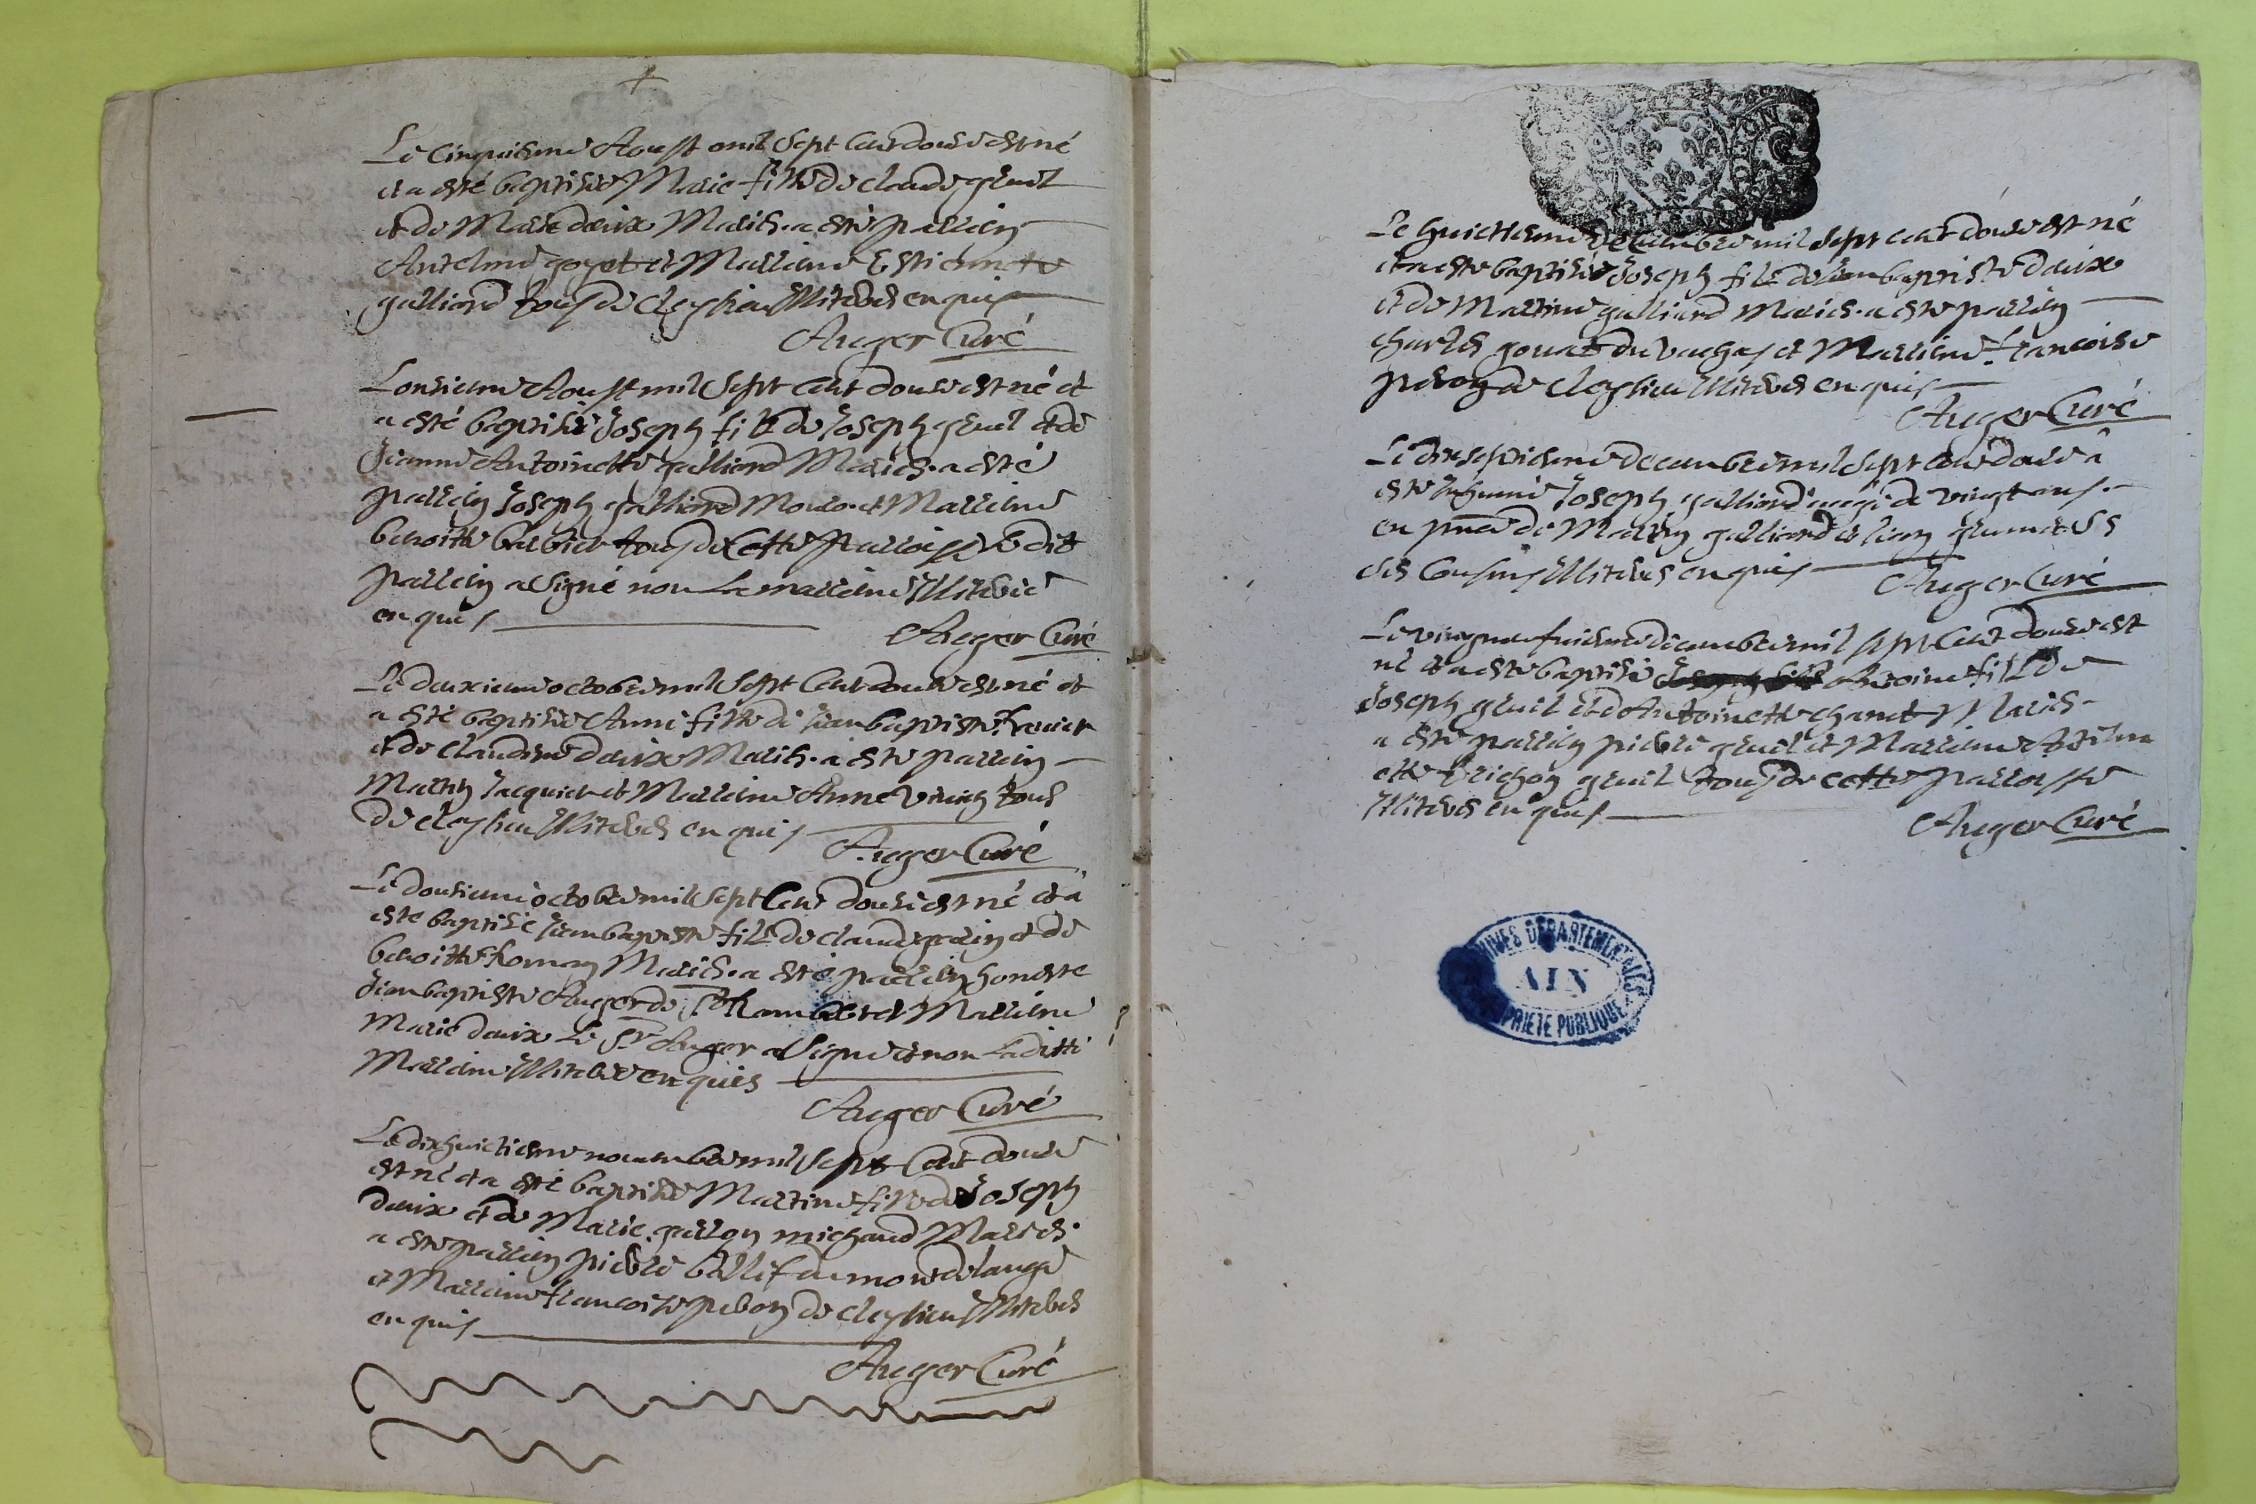 Le cinquieme Aoust mil sept cent douze est né
et a esté baptisée Marie fille de claude gruel
et de Marie daux Mariés. a esté parrein
Antelme goyet et Marreine Estiennette
galliard tous de Cleyzieu Illiterés enquis
Auger Curé
Lonzieme Aoust mil sept cent douze est né et
a esté baptisé Joseph fils de Joseph gruel et de
Jeanne Antoinette galliard Mariés. a esté
parrein Joseph galliard et Marreine
benoitte barbier tous de Cette parroisse ledit
parrein a signé non La marreine Illiterée
enquis
Auger Curé
Le deuxieme octobre mil sept Cent douze est né et
a esté baptisée Anne fille de jean baptiste
et de Claudine daux Mariés. a esté parrein
Martin Jacquier et Marreine Anne tous
de cleyzieu Illiterés enquis
Auger Curé
Le douzieme octobre mil sept Cent douze est né et a
esté baptisé jean baptiste fils de claude et de
benoitte Mariés. a esté parrein honeste
jean baptiste Auger de st Rambert et Marreine
Marie daux Le Sr Auger a Signé et non Laditte
Marreine Illiterée enquis
Auger Curé
Le dixhuictieme novembre mil sept Cent douze
est né et a esté baptisée Martine fille de Joseph
daux et de Marie michaud Mariés.
a esté parrein pierre ballif du mont de lange
et Marreine francoise de cleyzieu Illiterés
enquis
Auger Curé
Le huictieme decembre mil sept cent douze est né
et a esté baptisé Joseph fils de jean baptiste daux
et de Martine galliard Mariés. a esté parrein
charles et Marreine francoise
de Cleyzieu Illiterés enquis
Auger Curé
Le dixseptieme decembre mil sept cent douze a
esté Inhumé Joseph galliard aagé de vingt ans
en pnce de Martin galliard et
ses Cousins Illiterés enquis
Auger Curé
Le vingneufvieme decembre mil sept Cent douze est
né et a esté baptisé Antoine fils de
Joseph gruel et dAntoinette charvet Mariés
a esté parrein pierre gruel et Marreine Antelm
ette gruel tous de cette parroisse
Illiterés enquis
Auger Curé
ARCHIVES DEPARTEMENTALES
AIN
PROPRIETE PUBLIQUE